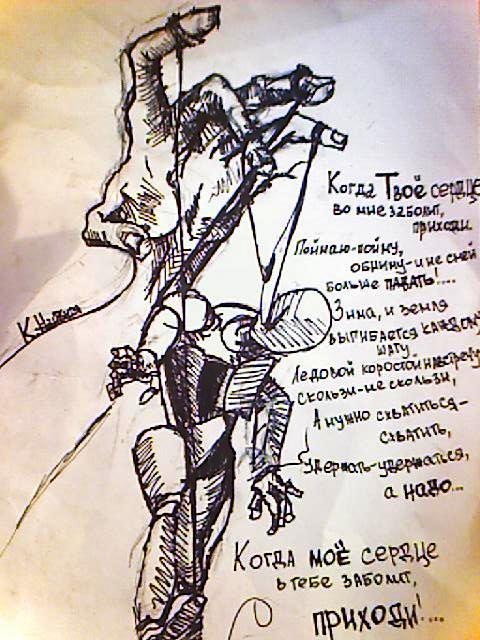 Когда Твоё сердце
во мне заболит,
приходи.
Поймаю-пойму,
обниму-и не смей
больше ПАДАТЬ!....
Зима, и земля
выгибается каждому
шагу
Ледовой коростой навстречу
скользи-не скользи,
А нужно схватиться-
схватить,
Удержать-удержаться,
а надо...
Когда МОЁ сердце
в тебе заболит,
ПРИХОДИ!...